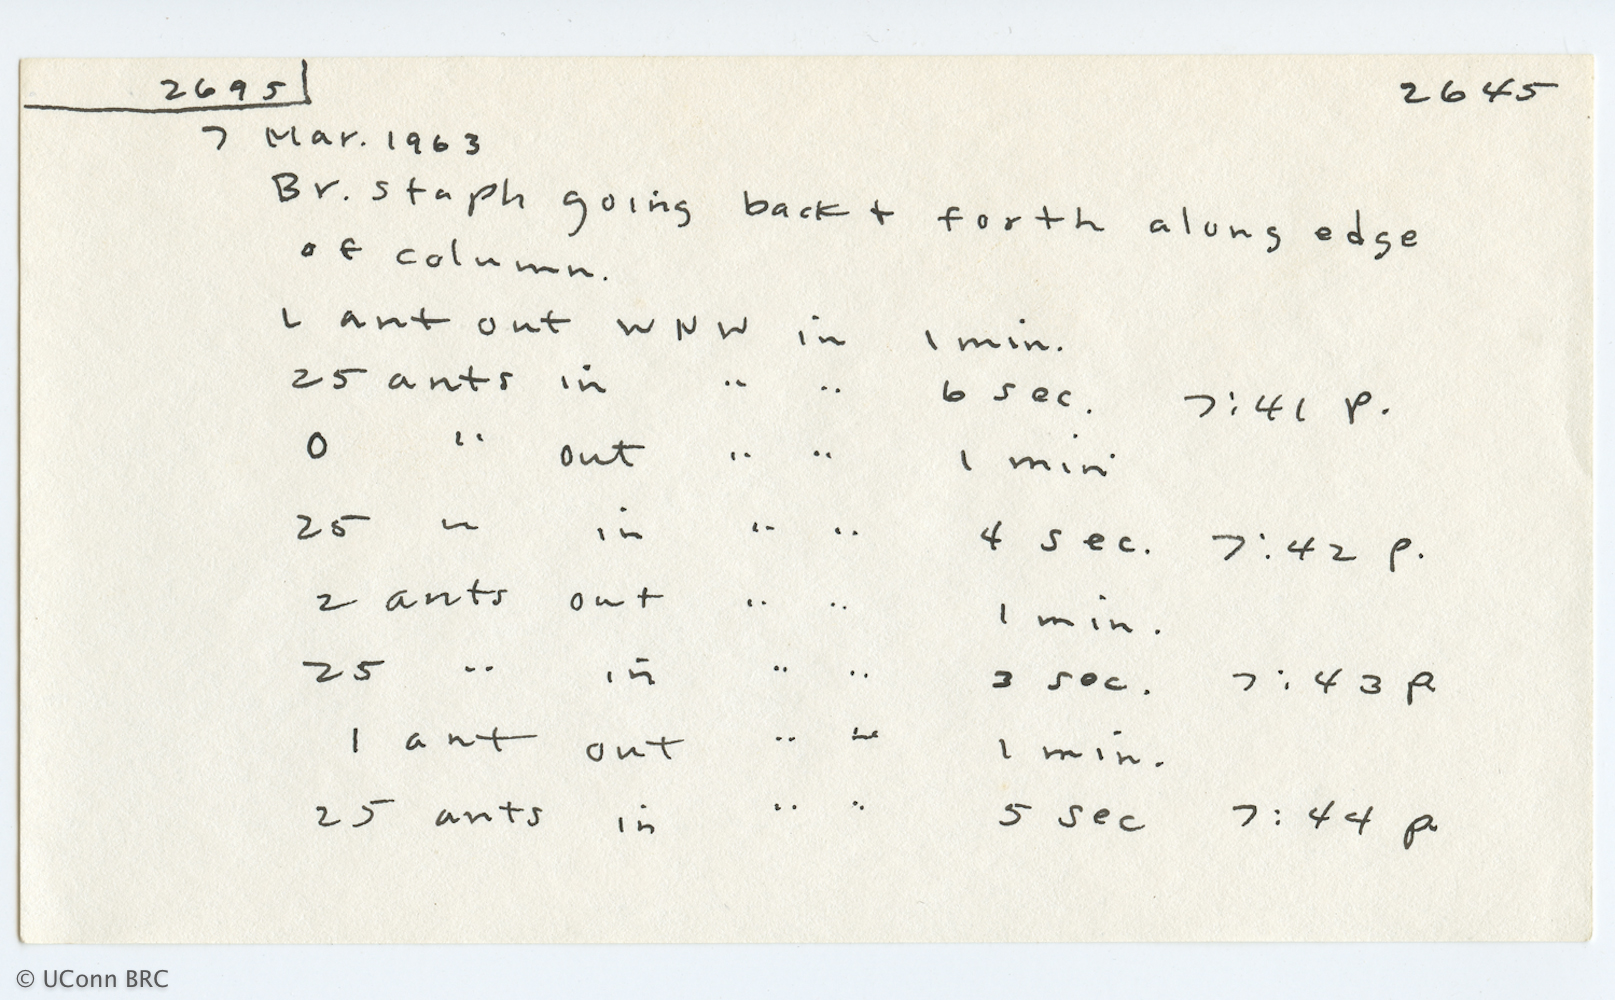 2695 2645
7 Mar. 1963
Br. staph going back + forth along edge
of column.
1 ant out WNW in 1 min.
25 ants in " " 6 sec. 7:41 p.
0 " out " " 1 min
25 " in " " 4 sec. 7:42 p.
2 ants out " " 1 min.
25 " in " " 3 sec. 7:43 p
1 ant out " " 1 min.
25 ants in " " 5 sec 7:44 p
© UConn BRC